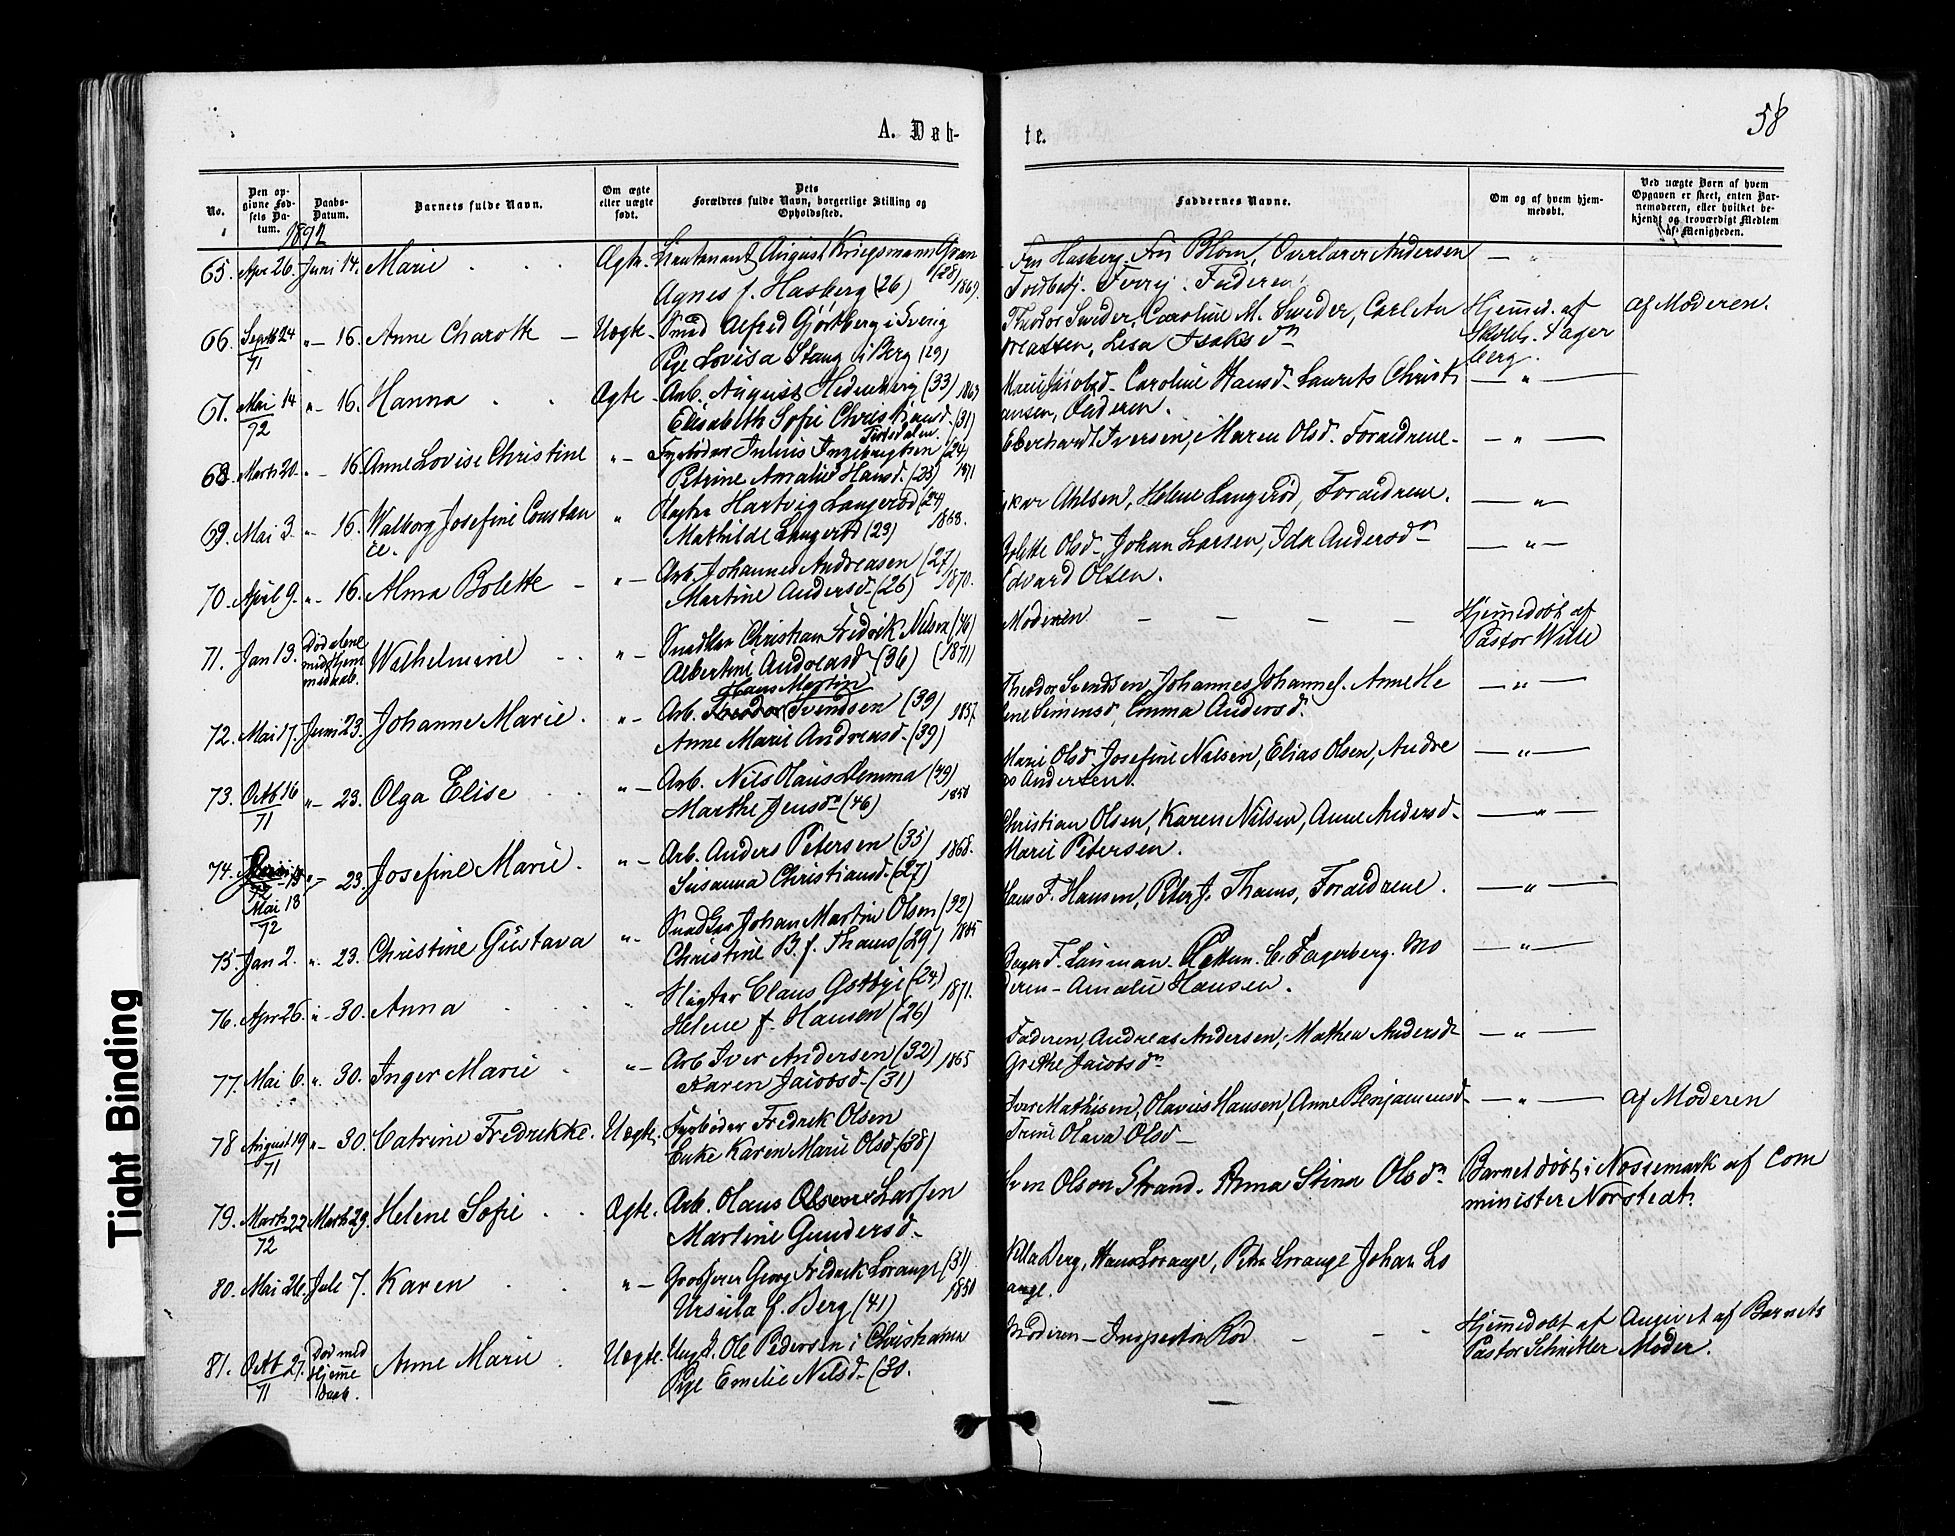 A. Døb-
te.
58
No.
Den opgivne Fødsels Datum.
Daabs-Datum.
Barnets fulde Navn.
Om ægte eller uægte født.
Dets Forældres fulde Navn, borgerlige Stilling og Opholdssted.
Faddernes Navne.
Om og af hvem hjemmedøbt.
Ved uægte Børn af hvem Opgaven er skeet, enten Barnemoderen, eller hvilket bekjendt og troværdigt Medlem af Menigheden.
65. Apr 26. Juni 14. Marie Ægte. Lieutenant August Kriegsmann Gran (28) 1869.
Agnes f. Hasberg (26)
Fru Hasberg. Fru Blom, Overlærer Andersen
Toldbetj. Faderen
66. Septb 24 71 "-16. Anne Charotte - Uægte. Smed Alfred Gjørtberg i Sverig
Pige Lovisa Stang i Berg (29)
Theodor Sweder, Caroline M. Sweder, Carl An
dreassen, Lesa Isaksdn
Hjemmed. af
Fager
berg.
af Moderen.
67. Mai 14 72 "-16. Hanna Ægte - Arb. August Hedenberg (33) 186
Elisabeth Sofie Christiansd. (31)
Marie Jacobsd. Caroline Hansd. Laurits Christi
ansen, Faderen.
68. Marts 20. "-16 Anne Lovise Christine "- Fyrbøder Julius Ingebregtsen (24)
Tistedalen.
Petrine Amalie Hansd. (23) 1871
Eberhardt Iversen, Maren Olsd. Forældrene -
69. Mai 3. "-16. Walborg Josefine Constan
ce.
" Slagter Hartvig Langerød (24)
Mathilde Langerød (23) 1868.
Ahlsen, Helene Langerød, Forældrene.
70. April 9. "-16. Alma Bolette - "- Arb. Johannes Andreasen (27)
Martine Andersd. (26) 1870.
Bolette Olsd - Johan Larsen, Ida Andersdn
Edvard Olsen.
71. Jan 13. Død alene
med Hjem
medaab.
Wilhelmine "- Snedker Christian Fredrik Nilsen (46)
Albertine Andreasd (36) (1871)
Moderen - - - -
Hjemmedøbt af
Pastor Wille
72. Mai 17. Juni 23. Johanne Marie. "- Hans Martin
Arb. Theodor Svendsen (39) 1857.
Anne Marie Andreasd. (39)
Theodor Svendsen, Johannes Johannes. Anne He
lene Simensd, Emma Andersd.
73. Octb 16 71 "-23. Olga Elise "- Arb. Nils Olaus Lemma (49)
Marthe Jensdn (46) 1850
Marie Olsd. Josefine Nilsen, Elias Olsen, Andre
as Andersen.
74. Mai 13 72 "-23. Josefine Marie. "- Arb. Anders Petersen (35) 1868.
Susanna Christiansd. (27)
Christian Olsen, Karen Nilsen, Anne Andersd.
Marie Petersen.
75. Jan 2. "-23. Christine Gustava "- Snedker Johan Martin Olsen (32)
Christine B. f. Thams (29) 1865
Hans F. Hansen, Peter J. Thams, Forældrene.
76. Apr 26. "-30. Anna Slagter Claus Østbye (24)
Helene f. Hansen (26) 1871.
C. Fagerberg. Mo
deren - Amalie Hansen.
77. Mai 6. "-30. Inger Marie "- Arb Iver Andersen (32) 1865
Karen Jacobsd. (31)
Faderen, Andreas Andersen, Mathea Andersd
Grethe Jacobsdn
78 August 19 71 "-30. Catrine Fredrikke. Uægte. Fyrbøder Fredrik Olsen
Enke Karen Marie Olsd. (38)
Iver Mathisen, Olavus Hansen, Anne Benjaminsd.
Trine Olava Olsd -
af Moderen
79. Marts 22 72 Marts 29. Helene Sofie Ægte. Arb. Olaus Olsen Larsen
Martine Gundersd.
Sven Olson Strand. Anna Stina Olsdn
Barnet døbt i Nössemark af Com
minister Norstedt.
80. Mai 26. Juli 7. Karen "- Grosserer Georg Fredrik Lorange (51)
Ursula f. Berg (41) 1850
Berg, Hans Lorange, Petra Lorange Johan Lo
range.
81. Octb 27. 71 Død med
Hjemme
daab.
Anne Marie Uægte. Ung K. Ole Pedersen i Christiania
Pige Emelie Nilsd. (30.
Moderen - Inspector Rød - - -
Hjemmedøbt af
Pastor Schnitler
Angivet af Barnets
Moder.
Tight Binding